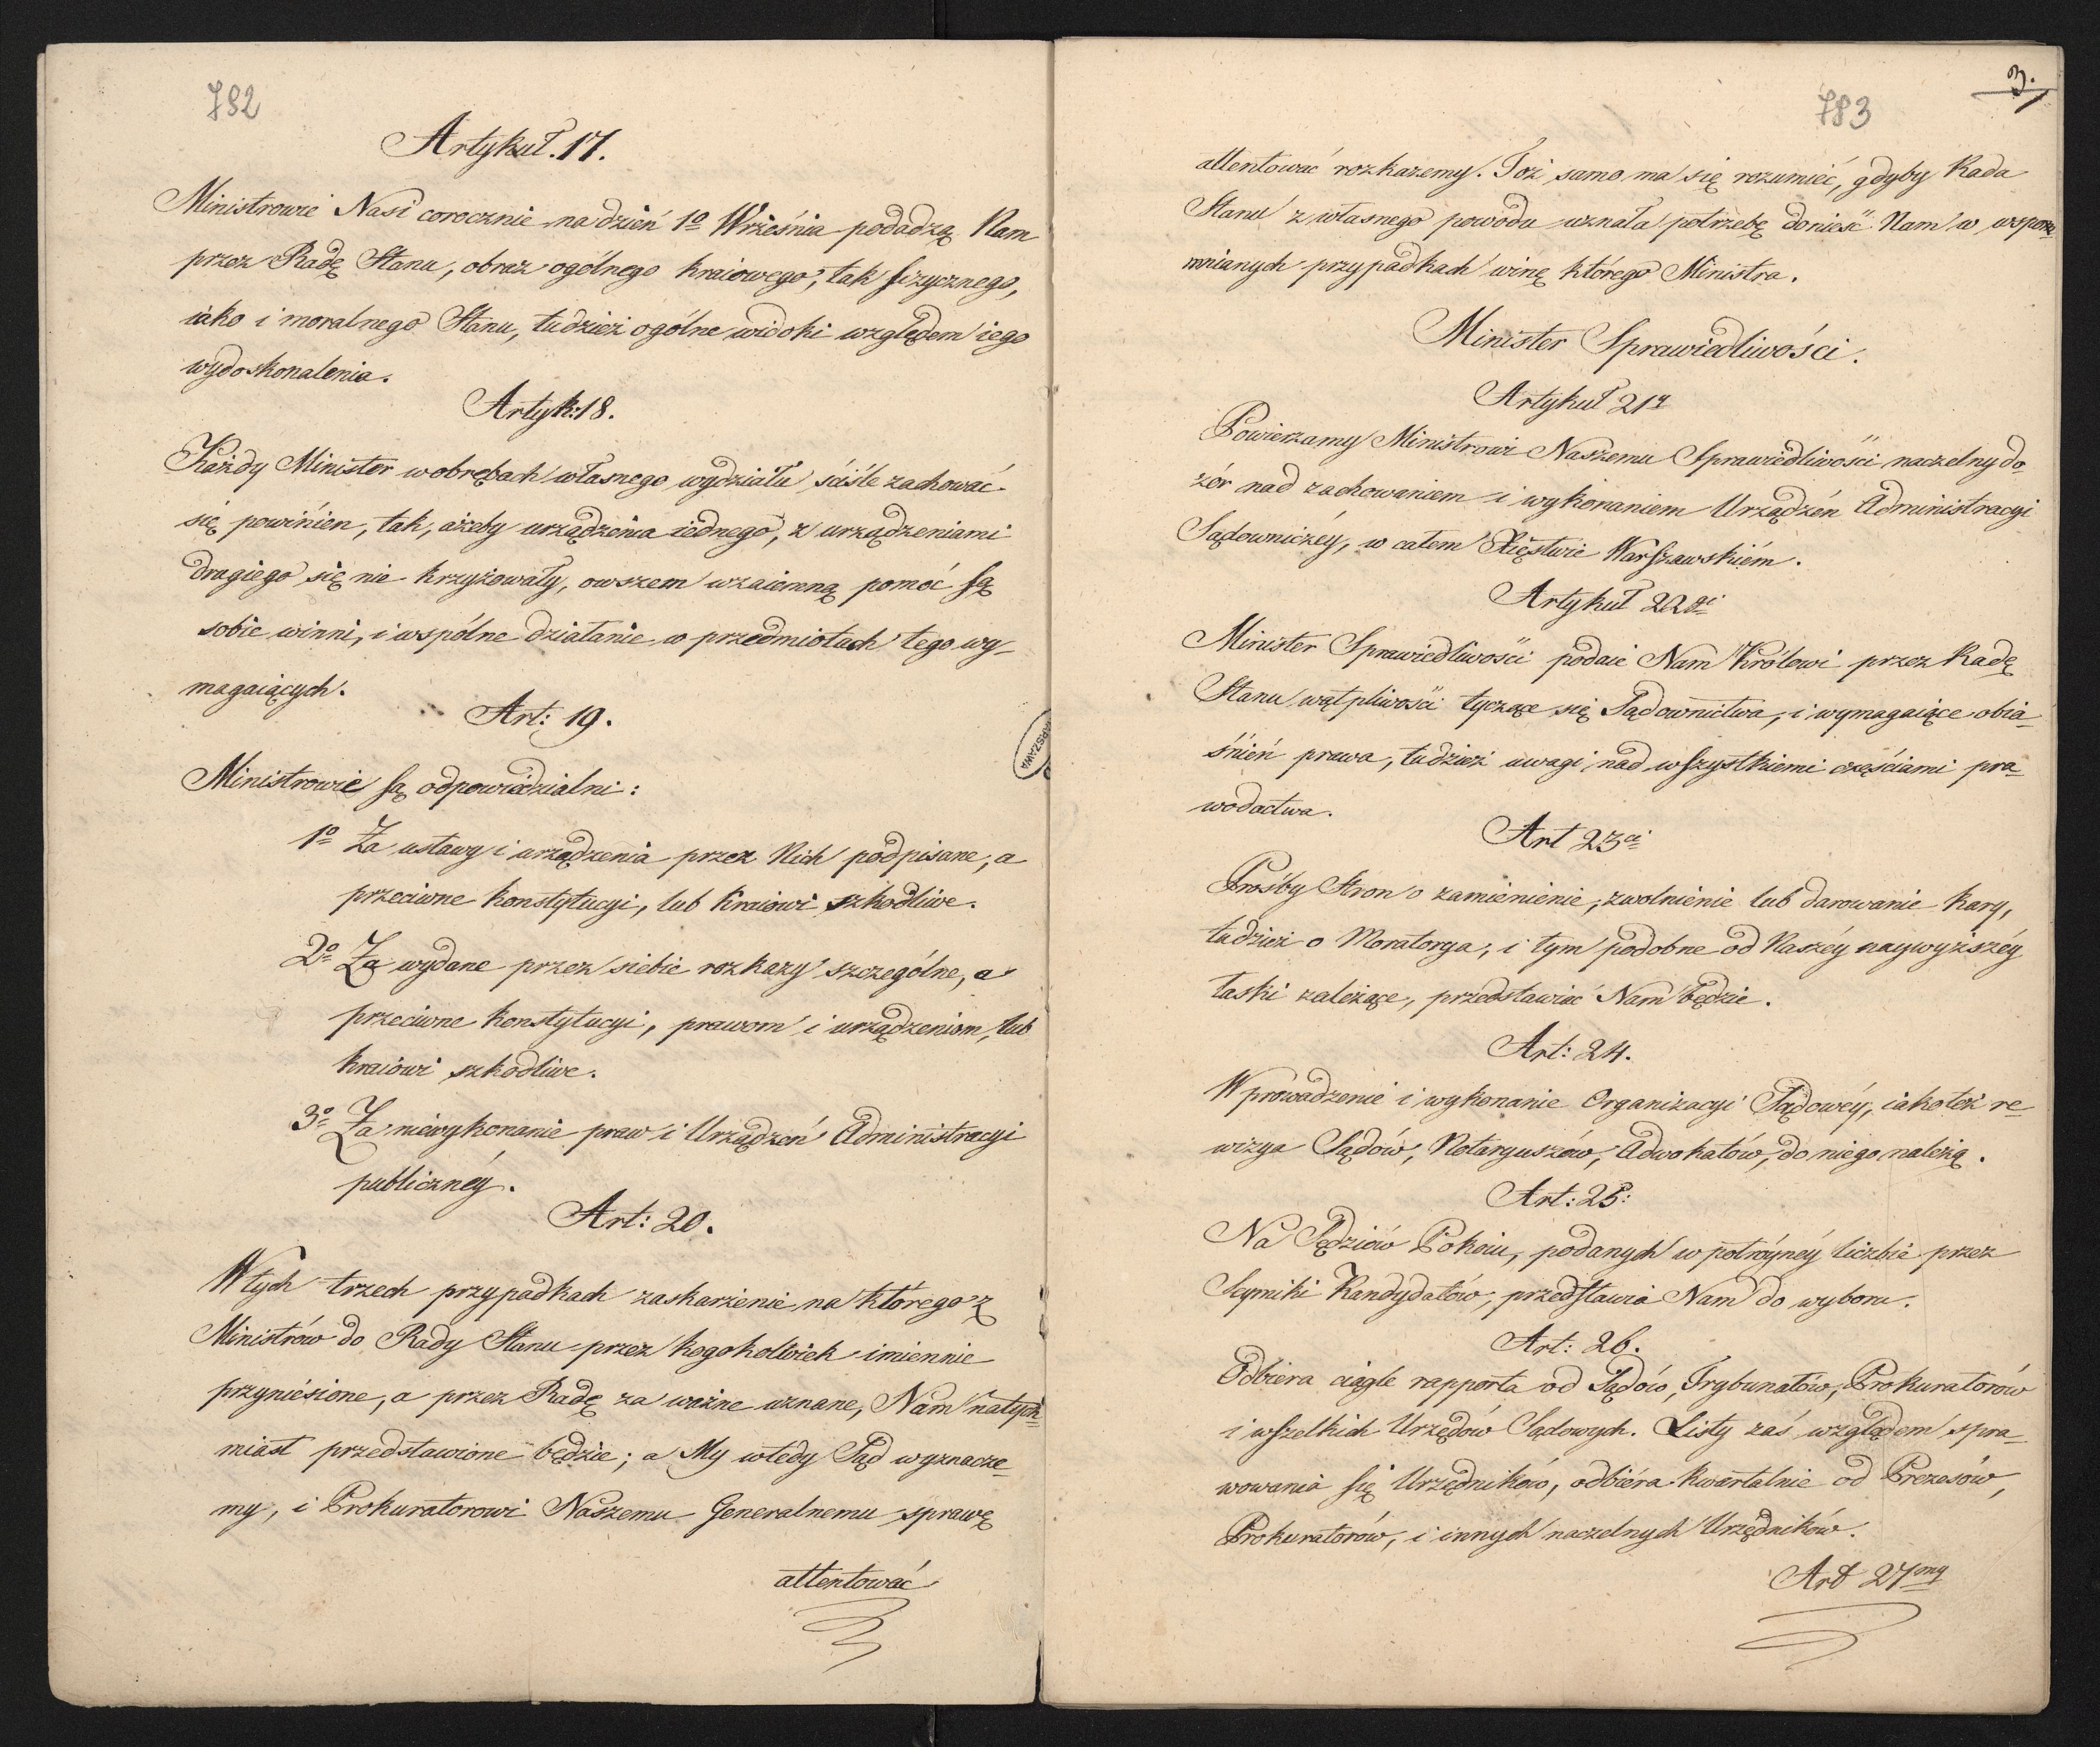 782
Artykuł. 17.
Ministrowie Nasi corocznie na dzień 1o Września podadzą Nam
przez Radę Stanu, obraz ogólnego kraiowego, tak fizycznego,
iako i moralnego Stanu, tudzież ogólne widoki względem iego
wydoskonalenia.
Artyk: 18.
Każdy Minister w obrębach własnego wydziału ściśle zachować
się powinien, tak, ażeby urządzenia iednego, z urządzeniami
drugiego się nie krzyżowały, owszem wzaiemną pomoć są
sobie winni, i wspólne działanie w przedmiotach tego wy-
magaiących.
Art: 19.
Ministrowie są odpowiedzialni:
1o Za ustawy i urządzenia przez Nich podpisane, a
przeciwne konstytucyi, lub kraiowi szkodliwe.
2o Za wydane przez siebie rozkazy szczególne, a
przeciwne konstytucyi, prawom i urządzeniom, lub
kraiowi szkodliwe.
3o Za niewykonanie praw i Urządzeń Administracyi
publicznéy.
Art: 20.
W tych trzech przypadkach zaskarżenie na którego z
Ministrów do Rady Stanu przez kogokolwiek imiennie
przyniesione, a przez Radę za ważne uznane, Nam natych=
miast przedstawione będzie; a My wtedy Sąd wyznacze=
my, i Prokuratorowi Naszemu Generalnemu sprawę
attentować
WARSZAWA
3.
783
attentować rozkażemy. Toż samo ma się rozumieć, gdyby Rada
Stanu z własnego powodu uznała potrzebę donieść Nam w wspom=
mnianych przypadkach winę którego Ministra.
Minister Sprawiedliwości.
Artykuł 21y
Powierzamy Ministrowi Naszemu Sprawiedliwości naczelny do
zór nad zachowaniem i wykonaniem Urządzeń Administracyi
Sądowniczéy, w całem Xięstwie Warszawskiém.
Artykuł 22gi
Minister Sprawiedliwości podaie Nam Królowi przez Radę
Stanu wątpliwości tyczące się Sądownictwa, i wymagaiące obia=
śnień prawa, tudzież uwagi nad wszystkiemi częściami pra=
wodactwa.
Art 23ci
Prośby Stron o zamienienie, zwolnienie lub darowanie kary,
tudzież o Moratorya, i tym podobne od Naszéy naywyższéy
łaski zależące, przedstawiać Nam będzie.
Art: 24.
Wprowadzenie i wykonanie Organizacyi Sądowéy, iakoteż re=
wizya Sądów, Notaryuszów, Adwokatów, do niego należą.
Art: 25:
Na Sędziów Pokoiu, podanych w potróynéy liczbie przez
Seymiki Kandydatów, przedstawia Nam do wyboru.
Art: 26.
Odbiera ciągle rapporta od Sądów, Trybunałów, Prokuratorów
i wszelkich Urzędów Sądowych. Listy zaś względem spra=
wowania się Urzędników, odbiéra kwartalnie od Prezesów,
Prokuratorów, i innych naczelnych Urzędników.
Art 27my